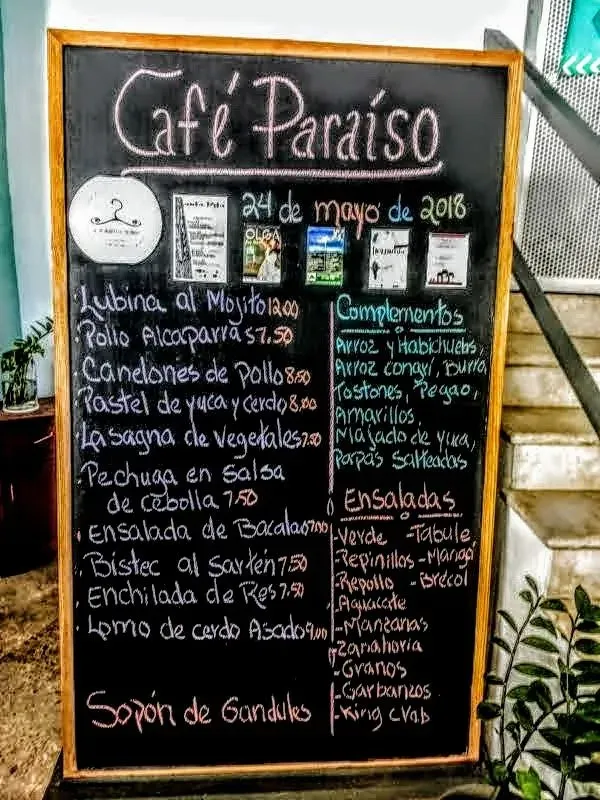 Café Paraíso
24 de mayo de 2018
OLGA
Lubina al Mojito 12.00
Pollo Alcaparras 7.50
Canelones de Pollo 8.50
Pastel de yuca y cerdo 8.00
Lasagna de Vegetales 7.50
Pechuga en salsa
de cebolla 7.50
Ensalada de Bacalao 7.00
Bistec al Sartén 7.50
Enchilada de Res 7.50
Lomo de cerdo Asado 9.00
Sopón de Gandules
Complementos
Arroz y Habichuelas,
Arroz congrí, Burro,
Tostones, Pegao,
Amarillos,
Majado de yuca,
Papas Salteadas
Ensaladas
-Verde -Tabule
-Pepinillos -Mango
-Repollo -Brecol
-Aguacate
-Manzanas
-Zanahoria
-Granos
-Garbanzos
-King Crab